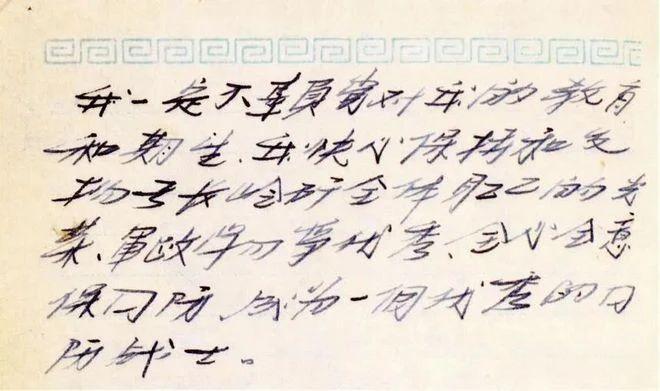 我一定不辜負党对我的教育
和期望、我决心保持和发
扬弓长岭矿全体职工的光
荣、軍政学习争优秀、全心全意
保国防、成为一個优秀的国
防战士。